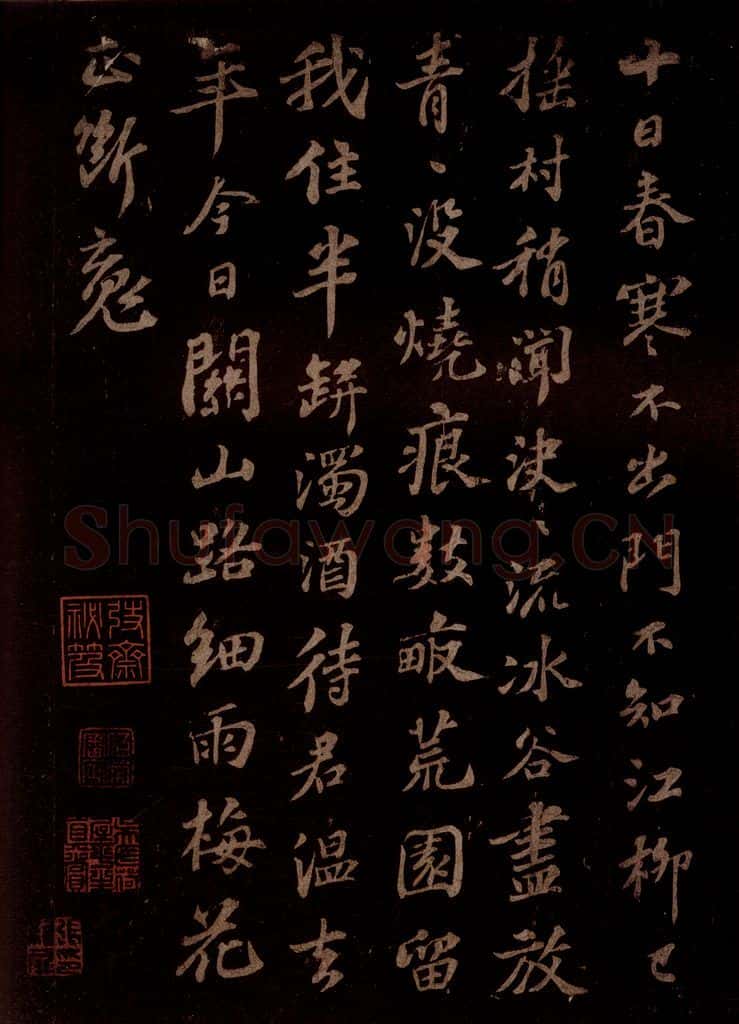 十日春寒不出門不知江柳已
搖村稍聞決、流冰谷盡放
青、没燒痕數畝荒園留
我住半缾濁酒待君温去
年今日關山路細雨梅花
正斷䰟
Shufawang.CN